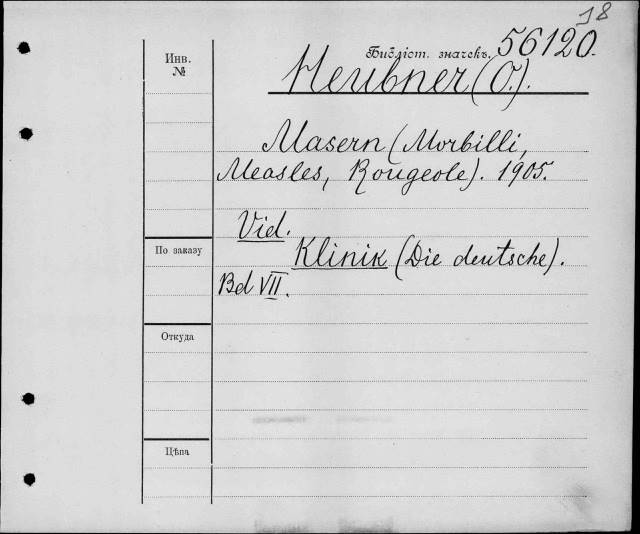 18
Инв.
№
Библіот. значекъ. 56120.
Heubner (O.).
Masern (Morbilli,
Measles, Rougeole). 1905.
Vid.
По заказу
Klinik (Die deutsche).
Bd VII.
Откуда
Цѣна